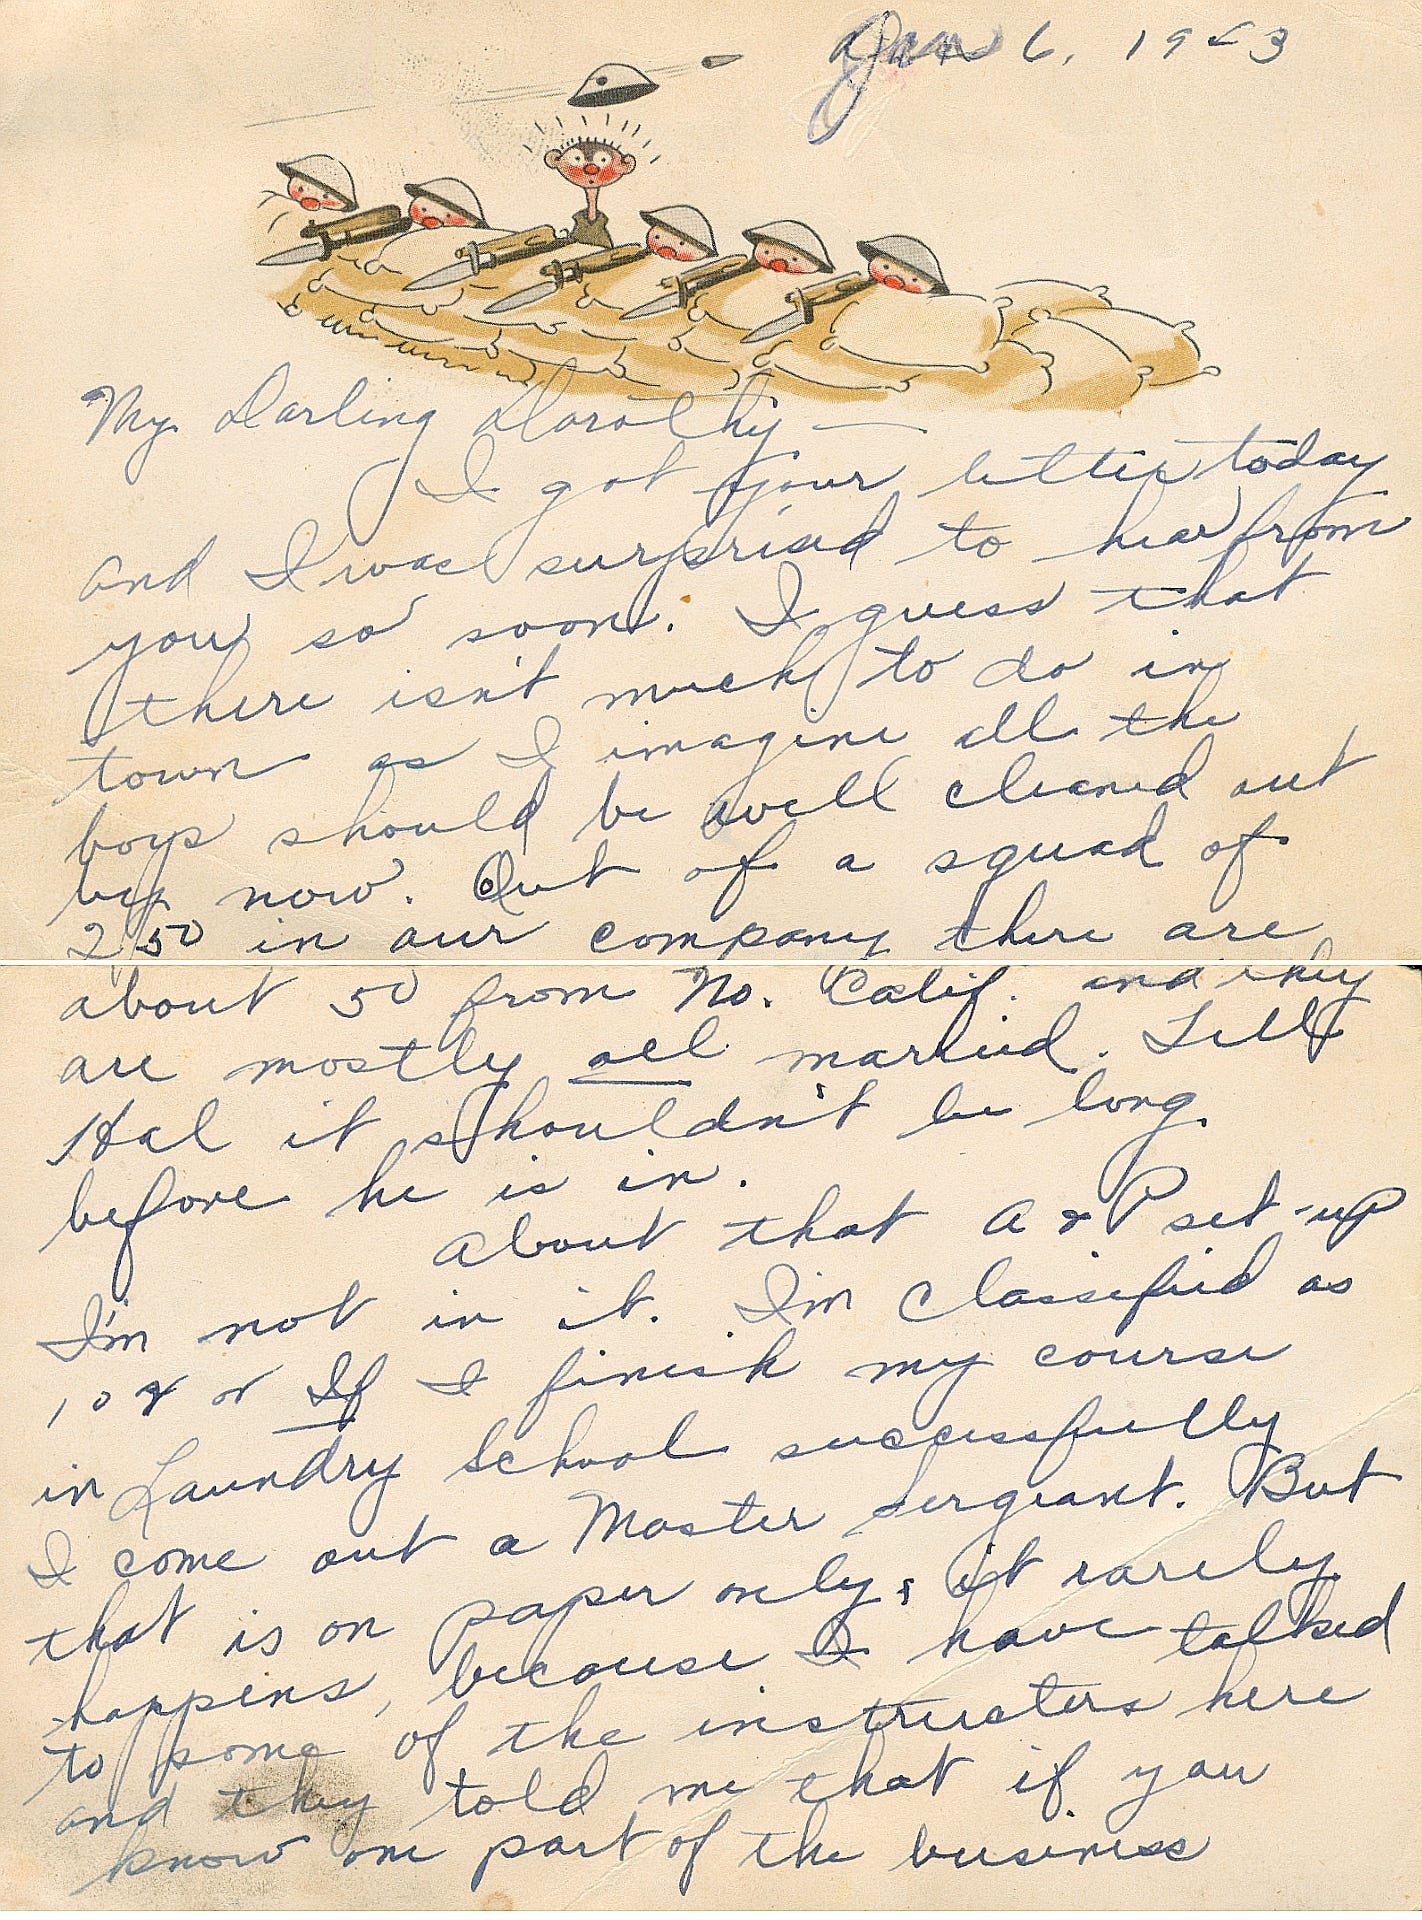 Jan 6, 1943
My Darling Dorothy —
I got your letter today
and I was surprised to hear from
you so soon. I guess that
there isn't much to do in
town as I imagine all the
boys should be well cleaned out
by now. Out of a squad of
250 in our company there are
about 50 from No. Calif. and they
are mostly all married. Tell
Hal it shouldn't be long
before he is in.
About that A & P set-up
I'm not in it. I'm classified as
or If I finish my course
in Laundry School successfully
I come out a Master sergeant. But
that is on paper only; it rarely
happens, because I have talked
to some of the instructers here
and they told me that if you
know one part of the business